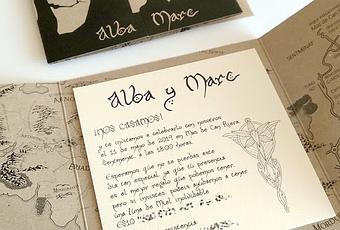 Alba Marc
Alba y Marc
¡NOS CASAMOS!
y te invitamos a celebrarlo con nosotros
el 11 de mayo de 2019 en Mas de Can Riera,
Sentmenat, a las 18:00 horas.
Esperamos que no te pierdas este
día tan especial, ya que tu presencia
es el mejor regalo que podemos tener,
pero si insistes, podéis ayudarnos a tener
una luna de Miel inolvidable
ES10